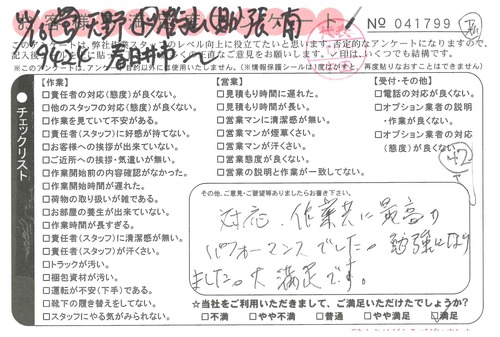 No 041799
このアンケートは、弊社作業スタッフのレベル向上に役立てたいと思います。否定的なアンケートになりますので、
☑印は、いくつでも結構です。
※このアンケートは、
(※情報保護シールは1度はがすと、再度貼りなおすことはできません)
チェックリスト
【作業】
□責任者の対応(態度)が良くない。
□他のスタッフの対応(態度)が良くない。
□作業を見ていて不安がある。
□責任者(スタッフ)に好感が持てない。
□お客様への挨拶が出来ていない。
□ご近所への挨拶・気遣いが無い。
□作業開始前の内容確認がなかった。
□作業開始時間が遅れた。
□荷物の取り扱いが雑である。
□お部屋の養生が出来ていない。
□作業時間が長すぎる。
□責任者(スタッフ)に清潔感が無い。
□責任者(スタッフ)が汗くさい。
□トラックが汚い。
□梱包資材が汚い。
□運転が不安(下手)である。
□靴下の履き替えをしてない。
□スタッフにやる気がみられない。
【営業】
□見積もり時間に遅れた。
□見積もり時間が長い。
□営業マンに清潔感が無い。
□営業マンが煙草くさい。
□営業マンが汗くさい。
□営業態度が良くない。
□営業の説明と作業が一致してない。
【受付・その他】
□電話の対応が良くない。
□オプション業者の説明
・作業が良くない。
□オプション業者の対応
(態度)が良くない。
42
その他、ご意見・ご要望等ありましたらお書き下さい。
対応、作業共に最高の
パフォーマンスでした。勉強になり
ました。大満足です。
☆当社をご利用いただきまして、ご満足いただけたでしょうか?
□不満 □やや不満 □普通 □やや満足 ☑満足